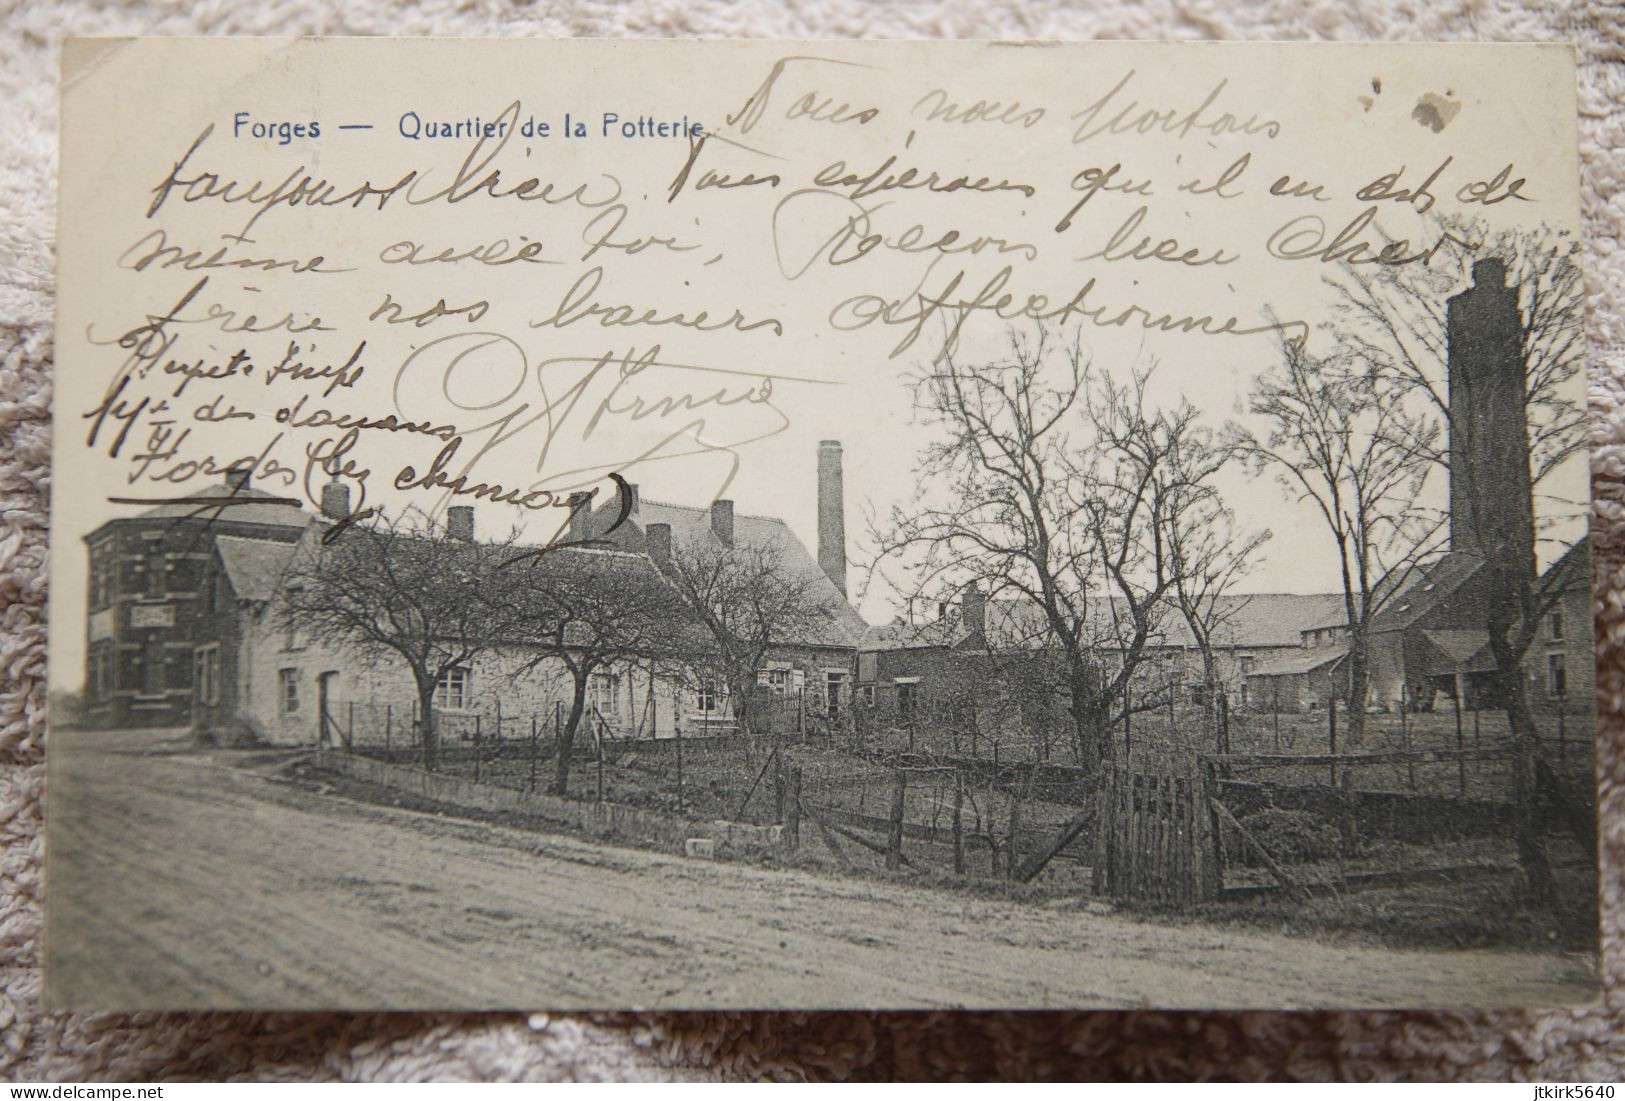 Forges — Quartier de la Potterie
Nous nous portons
toujours bien. Nous espérons qu'il en est de
même avec toi, Reçois bien Cher
frère nos baisers affectionnés
des douanes
Forges (lez chimay)
jtkirk5640